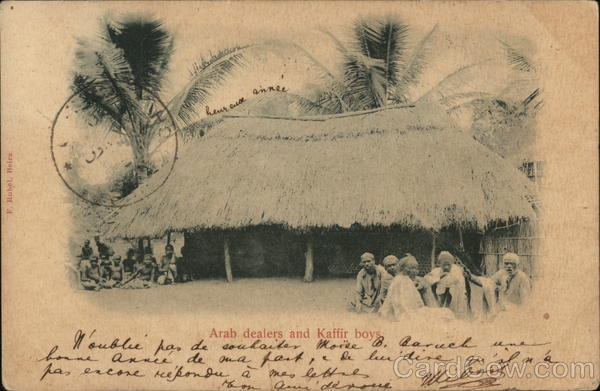 heureux année
F. Rubel, Beira
Arab dealers and Kaffir boys.
N'oublié pas de souhaiter Moïse B. Baruch une
bonne Année de ma part, & de lui dire qu'il n'a
pas encore répondu à mes lettres
Ton ami dévoué
CardCow.com